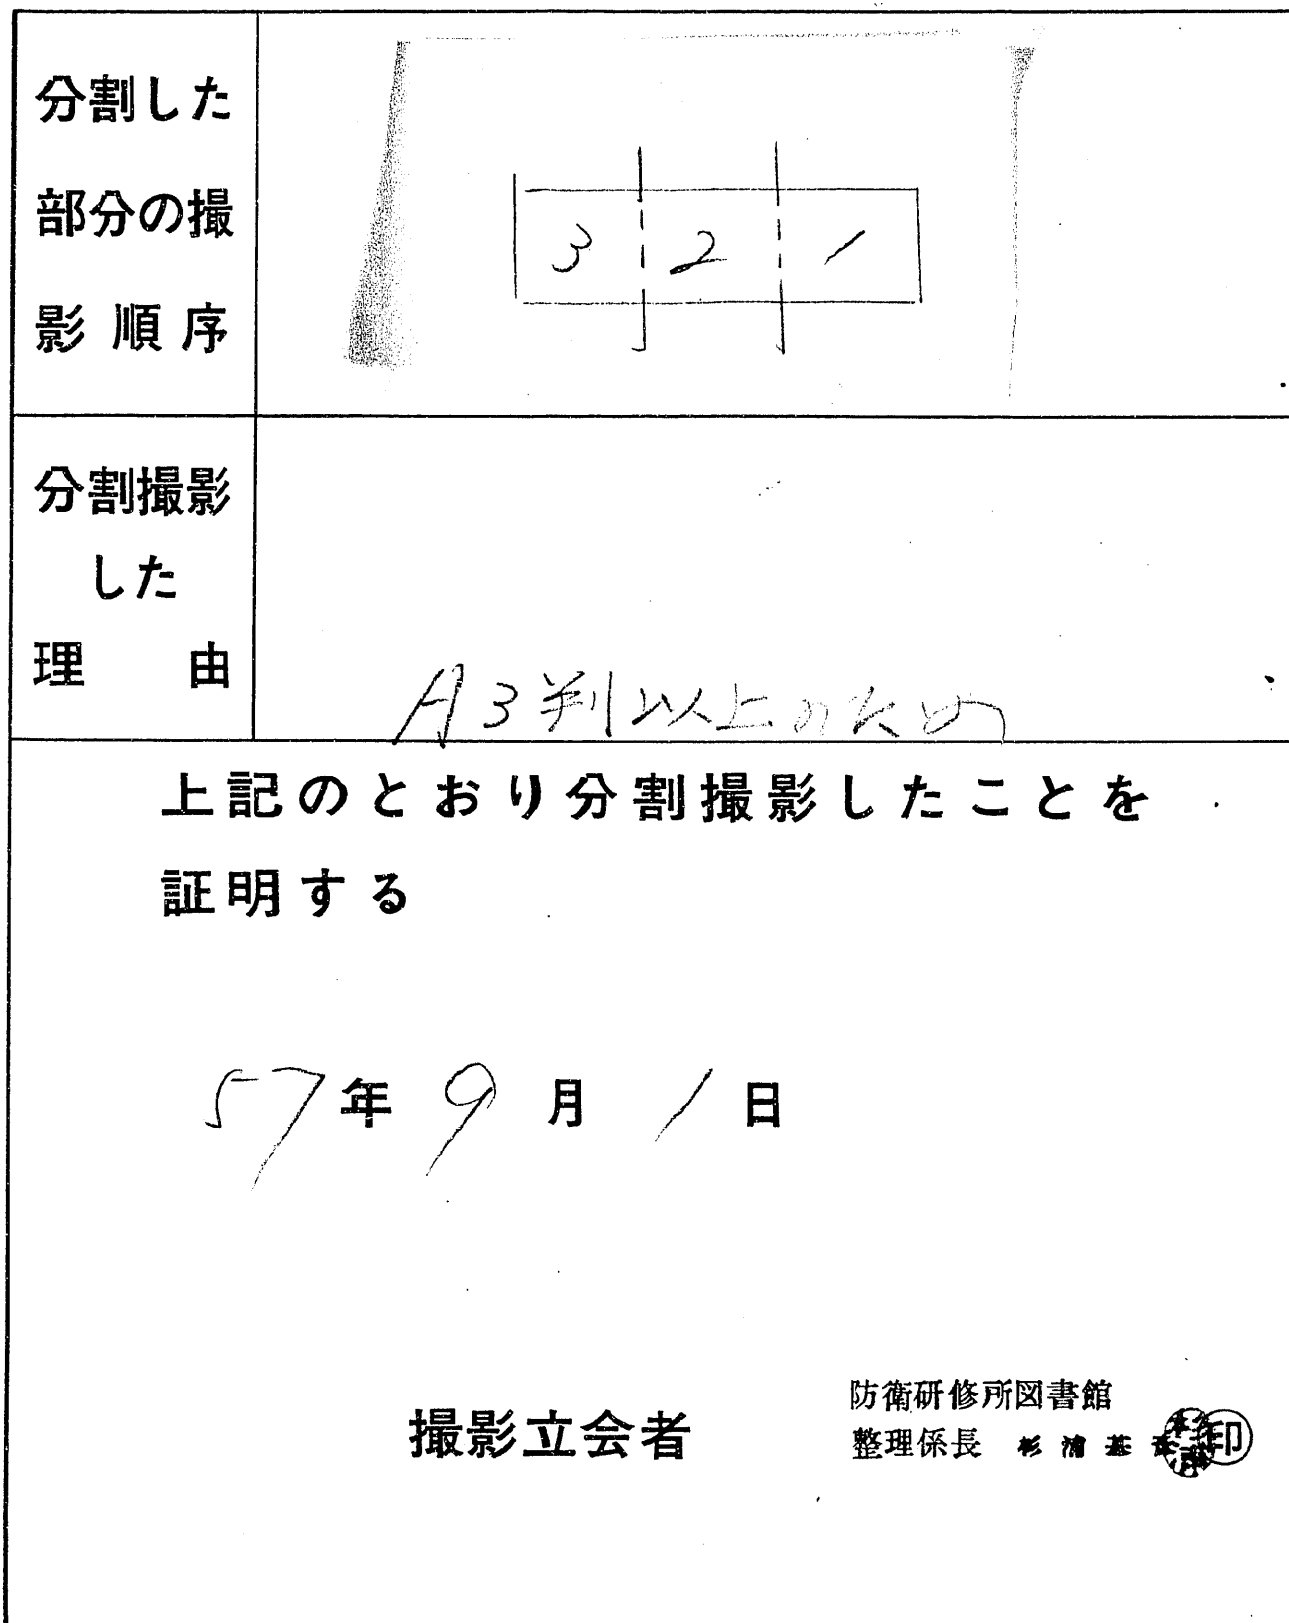 分割した
部分の撮
影順序
3 2 1
分割撮影
した
理由
A3判以上のため
上記のとおり分割撮影したことを
証明する
57年9月1日
撮影立会者
防衛研修所図書館
整理係長 杉浦基
印